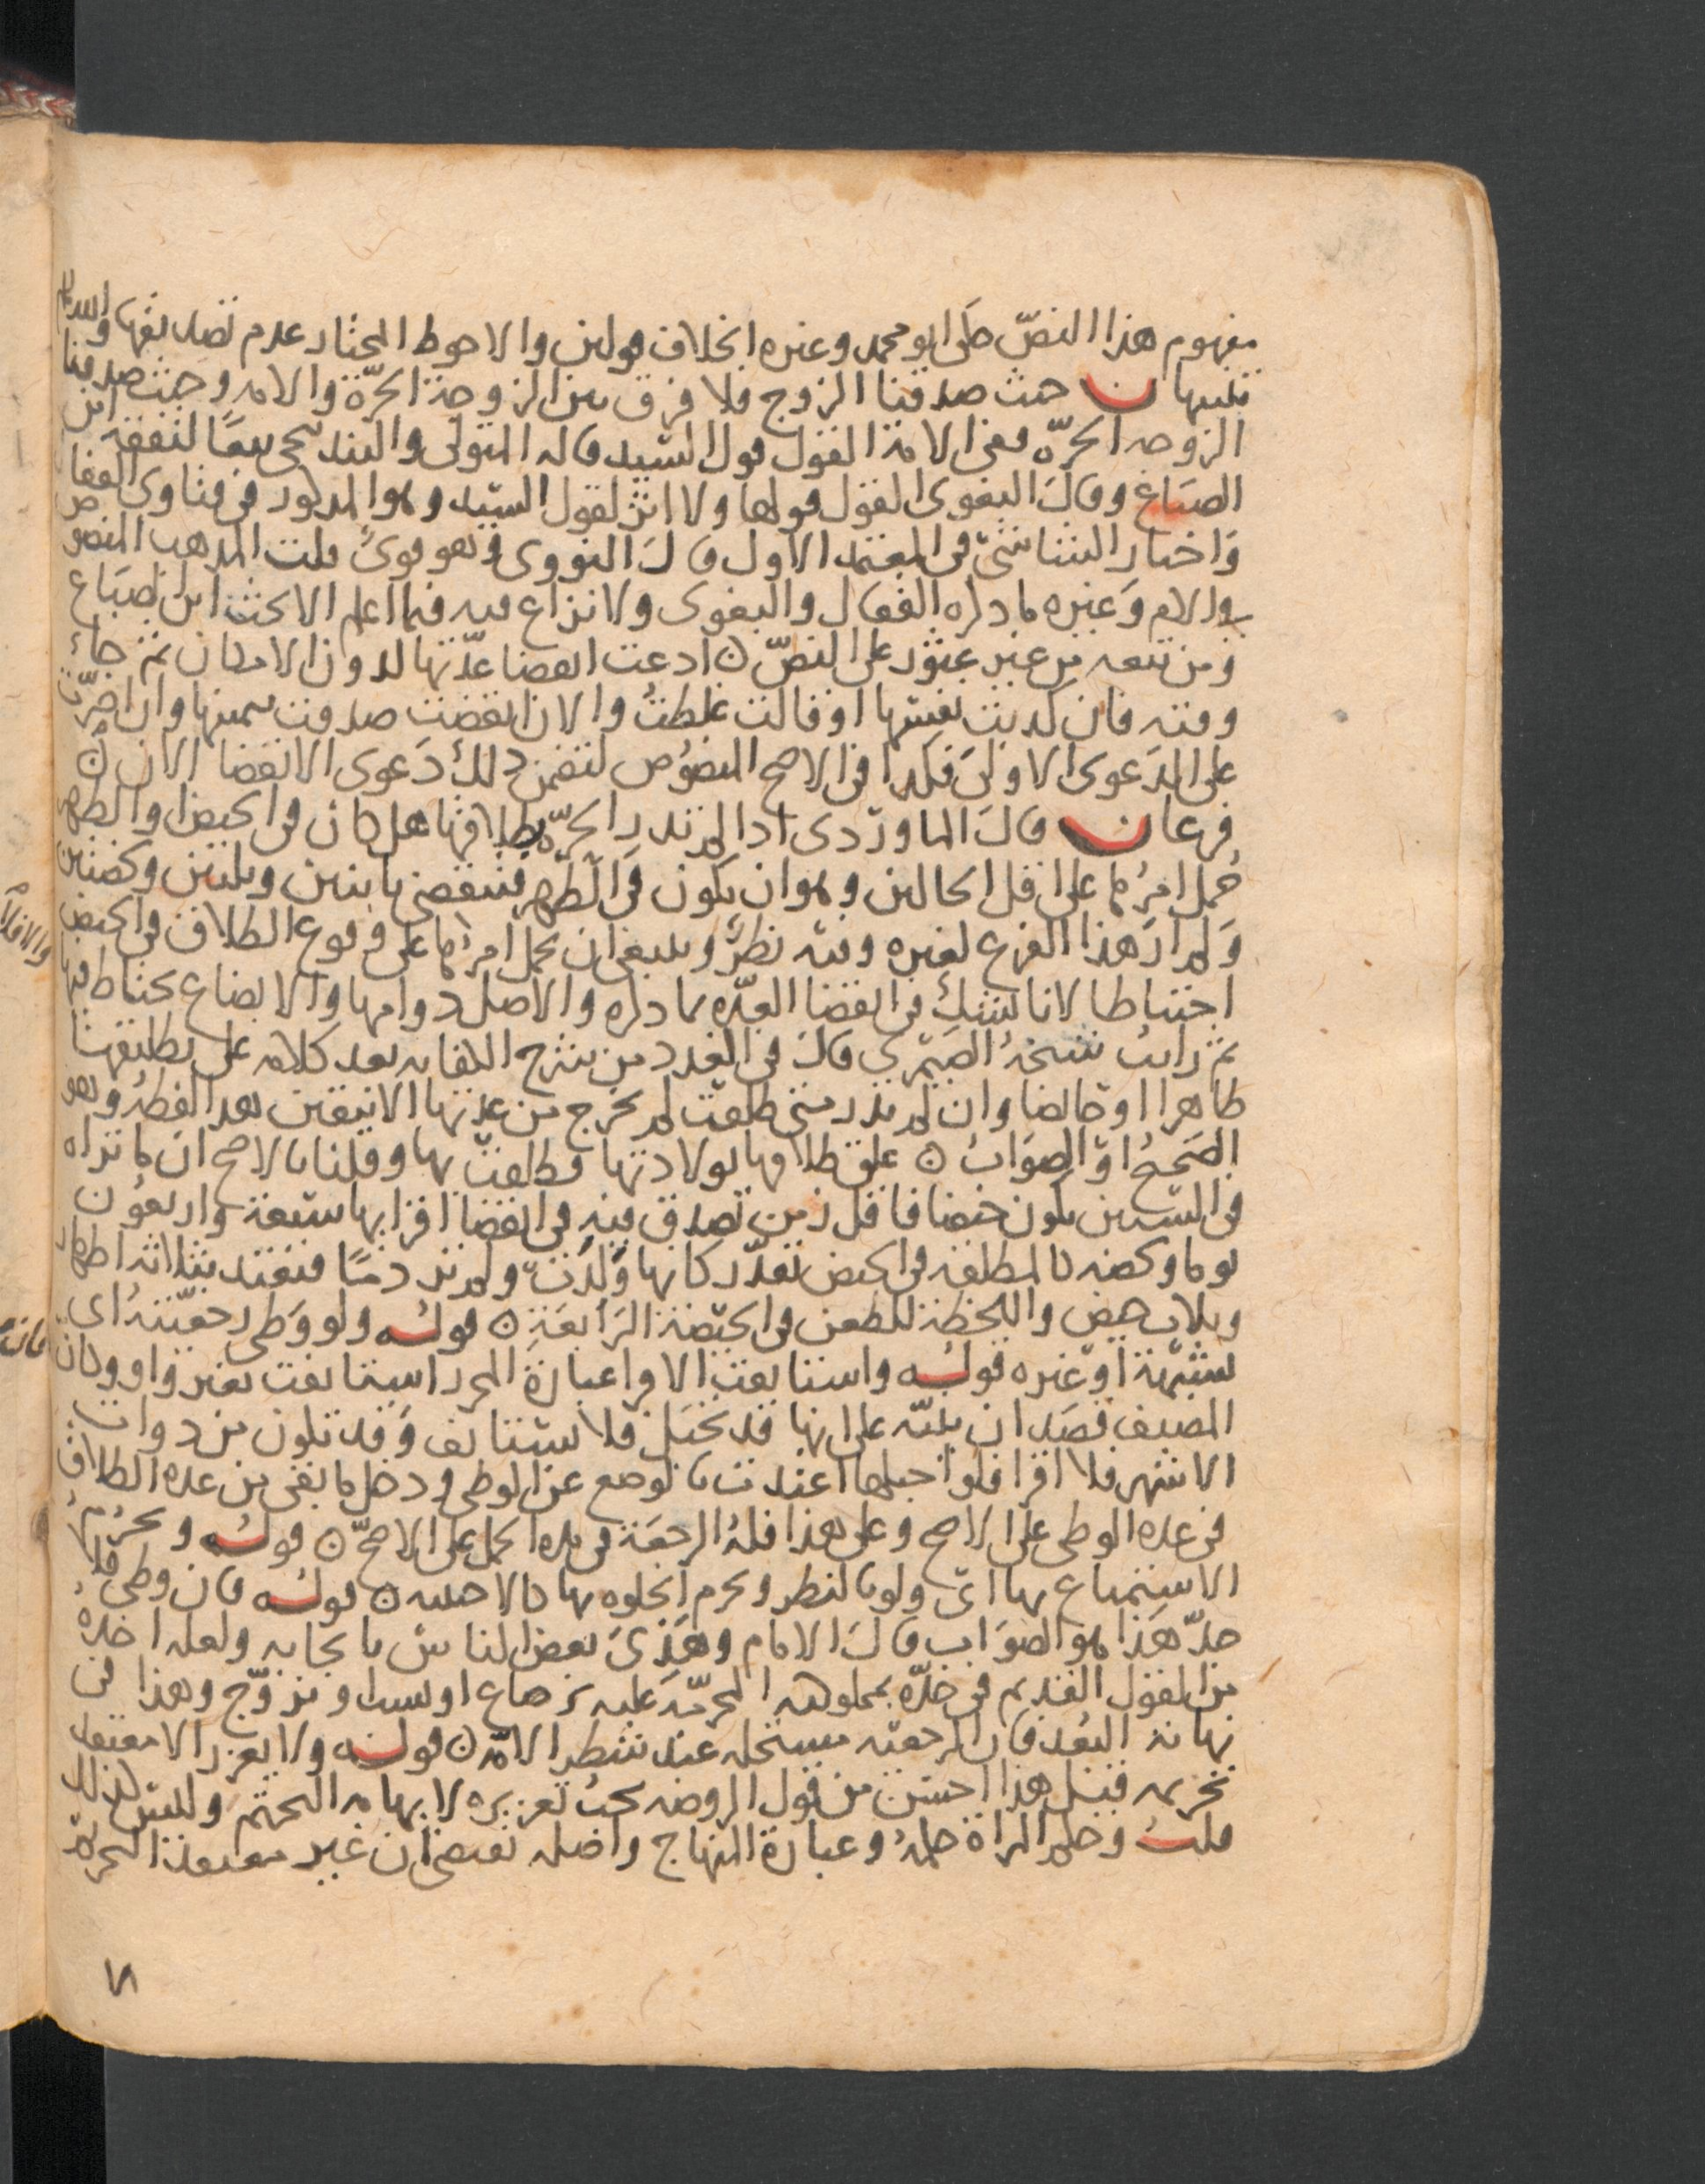 مفهوم هذا النصّ حكى ابو محمد وغيره الخلاف قولين والاحوط المختار عدم تصديقها والله اعلم
تنبيهان حيث صدقنا الزوج فلا فرق بين الزوجة الحرّة والامة وحيث صدقنا
الزوجة الحرّة ففي الامة القول قول السيد قاله المتولي والبندنيجي تبعًا لثقفة ابن
الصباغ وقال البغوي القول قولها ولا اثر لقول السيد وهو المذكور في فتاوى القفال
واختار الشاشيّ في المعتمد الاول قال النووي وهو قويّ قلت المذهب المنصوص
في الام وغيره ما ذكره القفال والبغوي ولا نزاع فيه فيما اعلم الا بحث ابن الصباغ
ومن تبعه من غير عثور على النصّ ۞ ادعت انقضا عدّتها لدون الامكان ثم جاء
وقته فان كذبت نفسها او قالت غلطتُ والان انقضت صدقت بيمينها وان اصرّت
على الدعوى الاولى فكذا في الاصح المنصوص لتضمن ذلك دعوى الانقضا الان ۞
فرعان قال الماوردي اذا لم تدر الحرّة طلاقها هل كان في الحيض او الطهر
حُمل امرُها على اقل الحالين وهو ان يكون في الطهر فتنقضي باثنين وثلثين ولحظتين
ولم ار هذا الفرع لغيره وفيه نظرٌ وينبغي ان يحمل امرُها على وقوع الطلاق في الحيض
احتياطا لانا نشكُّ في انقضا العدّة بما ذكره والاصل دوامها والابضاع يحتاط فيها
ثم رايت شيخهُ الصيمري قال في العدد من شرح الكفاية بعد كلامه على تطليقها
طاهرا او حائضا وان لم يدر متى طلقت لم تخرج من عدتها الا بيقين بعد الفطرة وهو
الصحيحُ او الصوابُ ۞ علق طلاقها بولادتها وطلقت بها وقلنا بالاصح ان ما تراه
في الستين يكون حيضا فاقل زمن تصدق فيه في انقضا اقرائها سبعة واربعون
يوما ولحظة كالمطلقة في الحيض نقدّر كانها ولدَت ولم تر دمًا فتعتد بثلاثة اطهار
وثلاث حيض واللحظة للطعن في الحيضة الرابعة ۞ قوله ولو وطى رجعيّته اى
بشبهة او غيره قوله واستانفت الاقرا عبارة المحرر استانفت بغير واو وكان
المصنف قصد ان ينبّه على انها قد تحبل فلا تستانف وقد تكون من ذوات
الاشهر فلا اقرا فلو احبلها اعتدت بالوضع عن الوطى ودخل ما بقى من عدة الطلاق
في عدة الوطى على الاصح وعلى هذا فلهُ الرجعة في مدة الحمل على الاصحّ ۞ قوله ويحرُم
الاستمتاع بها اىّ ولو بالنظر ويحرم الخلوة بها كالاجنبية ۞ قوله فان وطى فلا
حدّ هذا هو الصواب قال الامام وهذى بعض الناس بايجابه ولعله اخذهُ
من القول القديم في حدّه بمملوكته المحرّمة عليه برضاع او نسب او تزوّج وهذا في
نهاية البُعد فان الرجعية مستحلة عند شطر الامّة ۞ قوله ولا يعزر الا معتقد
تحريمه قيل هذا احسن من قول الروضة يجبُ تعزيره لايهامه التحتّم وليس كذلك
قلتُ وحكم المراة حكمهُ وعبارة المنهاج واصله تقتضي ان غير معتقد التحريم